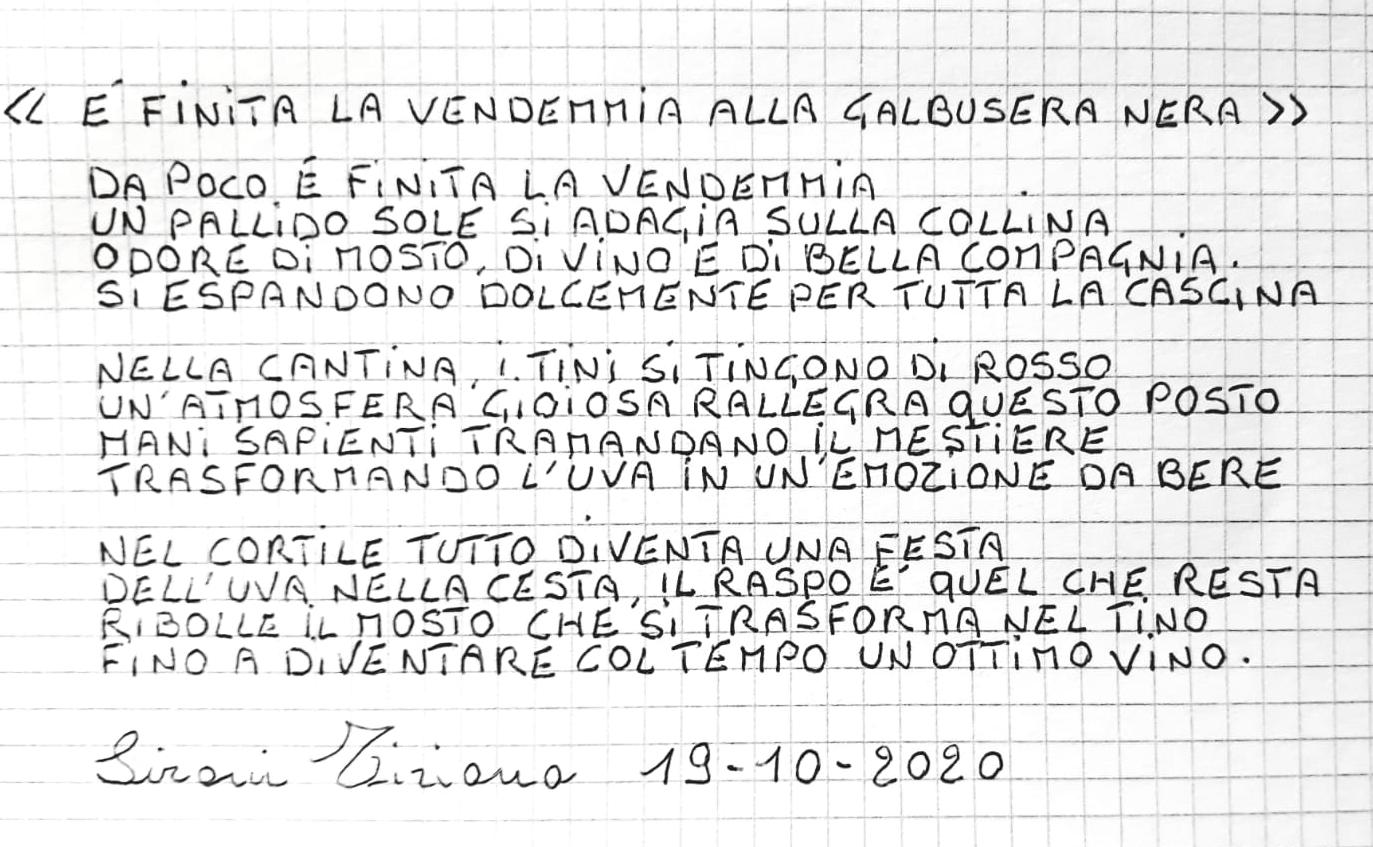 << É FINITA LA VENDEMMIA ALLA GALBUSERA NERA >>
DA POCO É FINITA LA VENDEMMIA
UN PALLIDO SOLE SI ADAGIA SULLA COLLINA
ODORE DI MOSTO, DI VINO E DI BELLA COMPAGNIA.
SI ESPANDONO DOLCEMENTE PER TUTTA LA CASCINA
NELLA CANTINA, I TINI SI TINGONO DI ROSSO
UN'ATMOSFERA GIOIOSA RALLEGRA QUESTO POSTO
MANI SAPIENTI TRAMANDANO IL MESTIERE
TRASFORMANDO L'UVA IN UN'EMOZIONE DA BERE
NEL CORTILE TUTTO DIVENTA UNA FESTA
DELL'UVA NELLA CESTA, IL RASPO E' QUEL CHE RESTA
RIBOLLE IL MOSTO CHE SI TRASFORMA NEL TINO
FINO A DIVENTARE COL TEMPO UN OTTIMO VINO.
Sironi Tiziana 19-10-2020